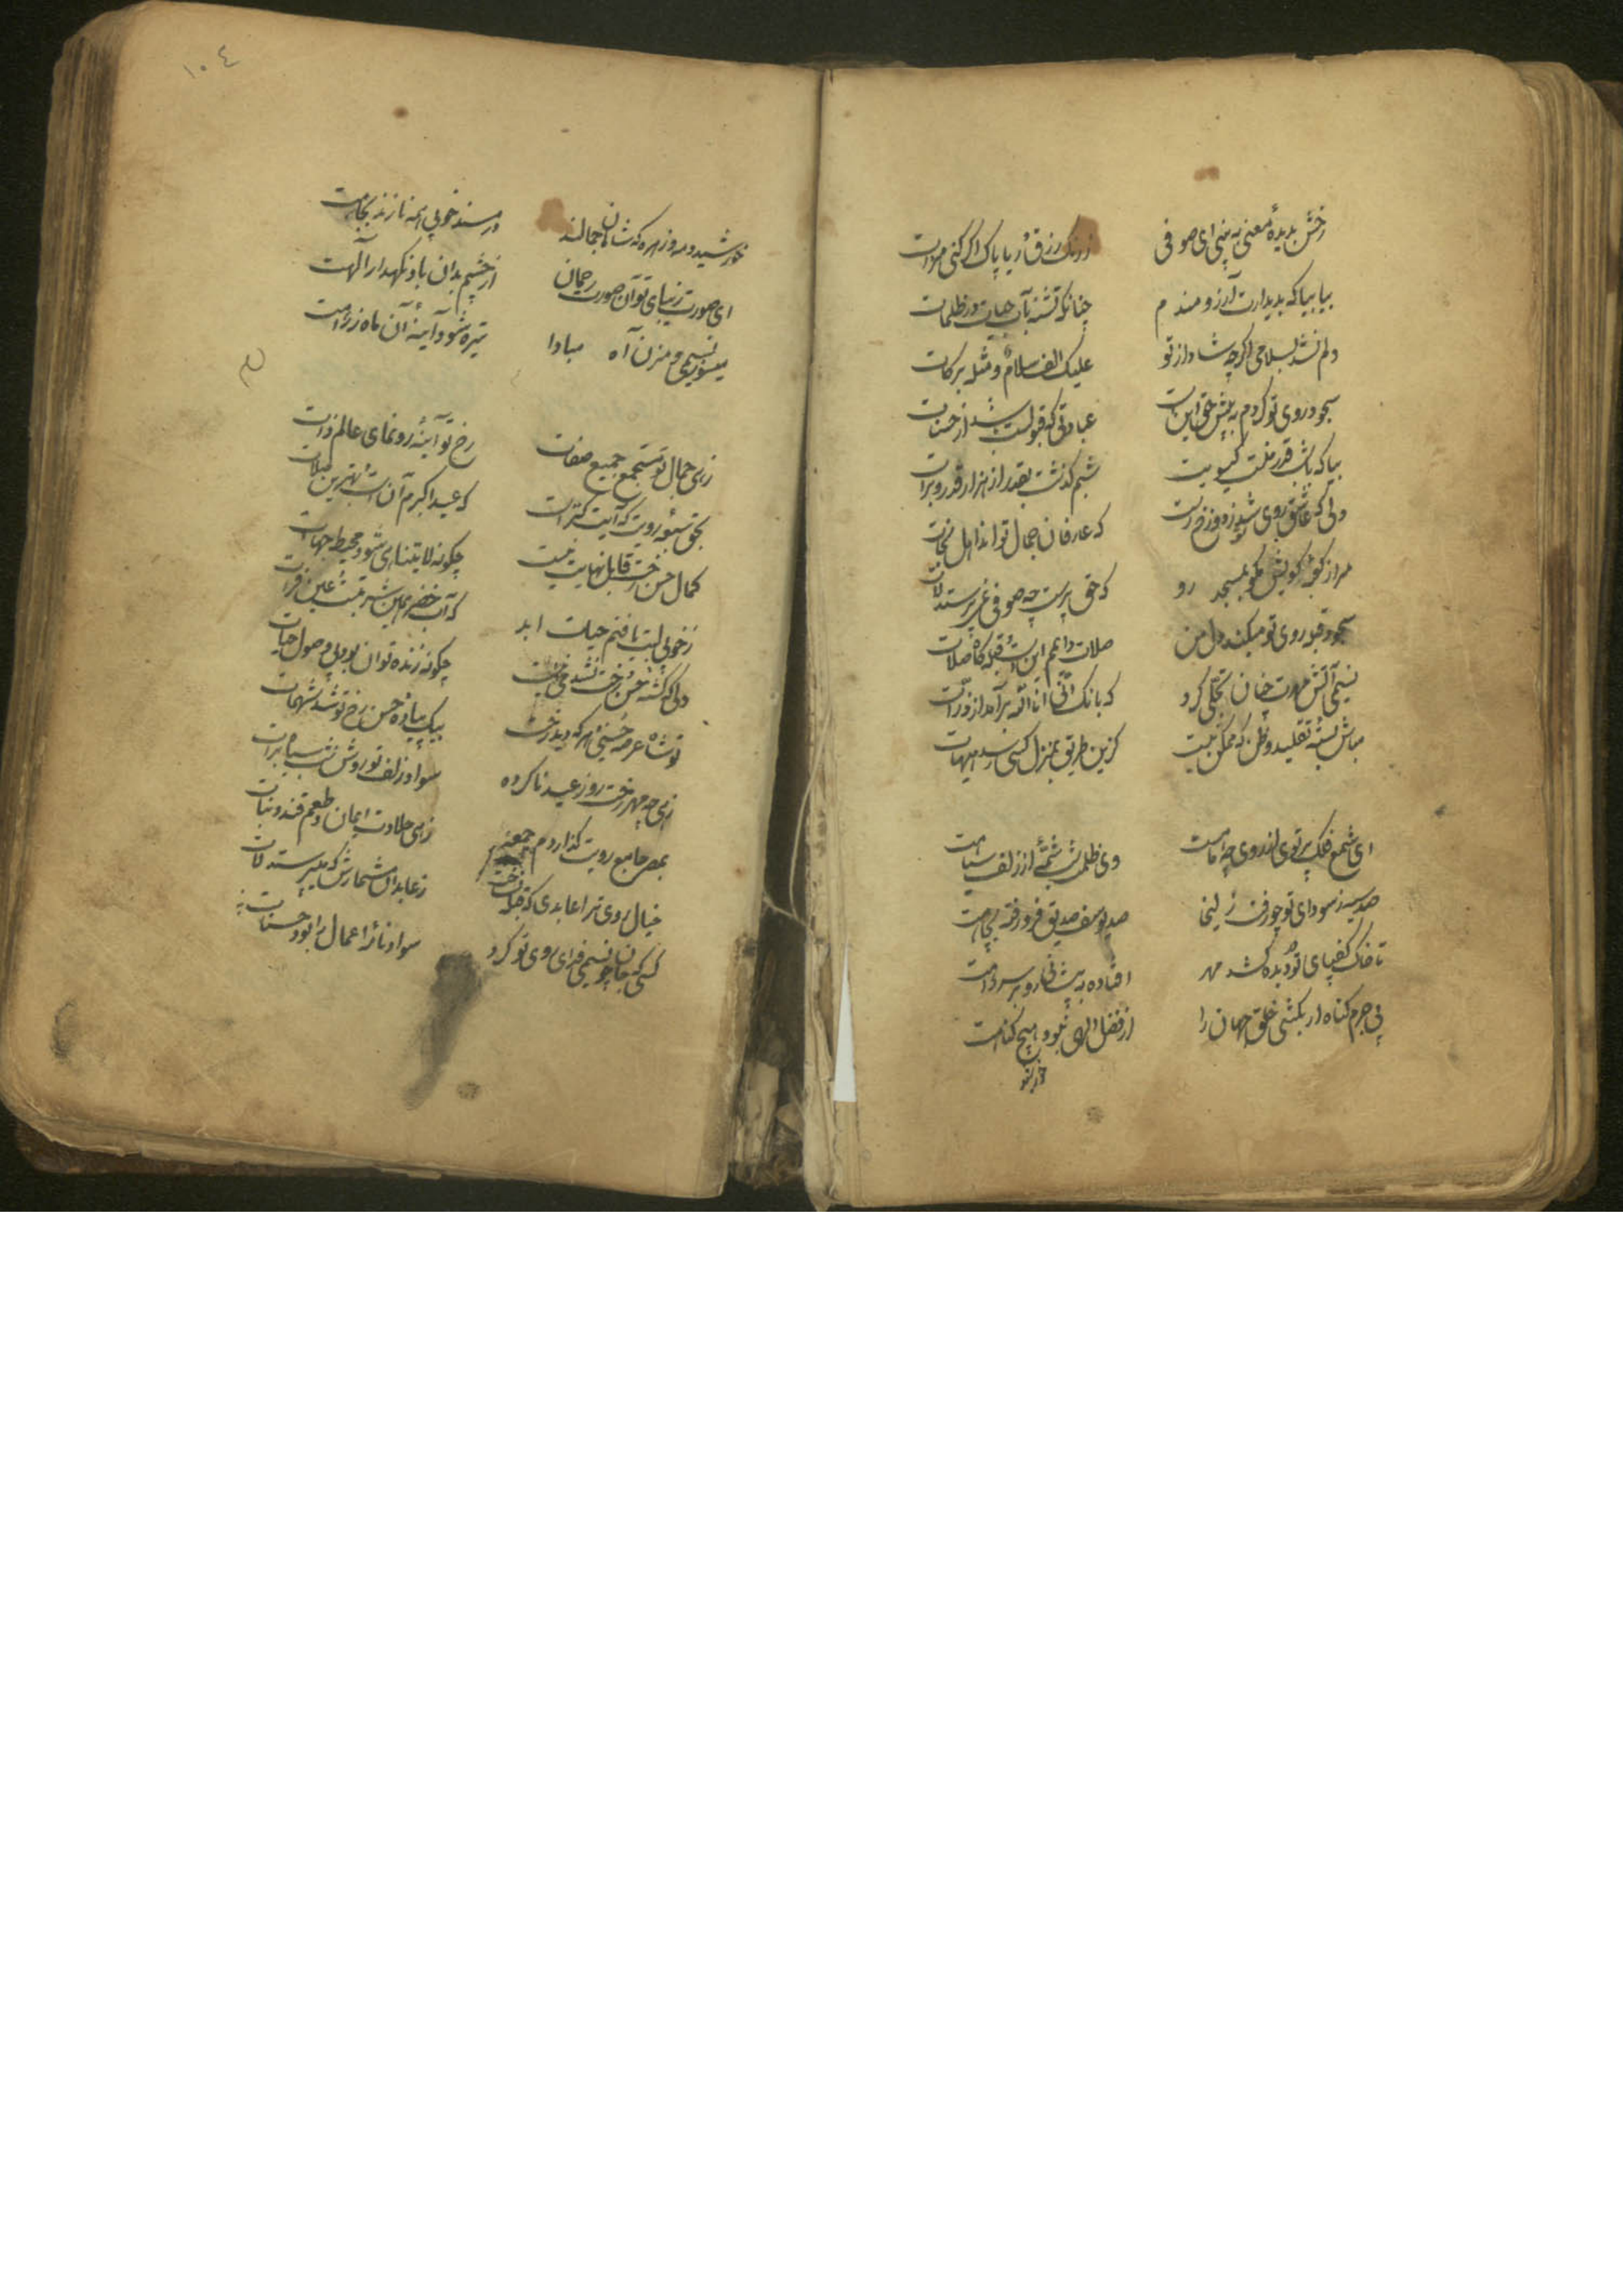 رخش بدیدهٔ معنی به بینی ای صوفی ز زنک زرق و ریا پاک اگر کنی مرآت
بیا بیا که بدیدارت آرزومندم چنانکه تشنه بآب حیات در ظلمات
دلم نشد بسلامی اگرچه شاد از تو علیک الف سلام و مثله برکات
سجود روی تو کردم به پیش حق اینست عبادتی که قبولست از حسنات
بیا که با شب قدر گیسویت شبم گذشت بقدر از هزار قدر و برات
ولی که عاشق روی شد ز دوزخ رست که عارفان جمال تو اند اهل نجات
مرا ز کعبهٔ کویش مگو بمسجد رو که حق پرست چه صوفی نمی پرستد لات
سجود قبلهٔ روی تو میکند دل من صلات دایم این است قبله گاه صلات
نسیمی آتش مهرت چنان تجلی کرد که بانک انی انا الله برآمد از ذرات
مباش بستهٔ تقلید و ظن که ممکن نیست کزین طریق بمنزل کسی رسد هیهات
ای شمع فلک پرتوی از روی چو ماهت وی ظلمت شب شمهٔ از زلف سیاهت
صد سینه ز سودای تو چون زلیخا صد یوسف صدیق فرو رفته بچاهت
تا خاک کف پای تو دیده کشد مهر افتاده به پیشانی و رو بر سر راهت
بی جرم گناه ار بکشی خلق جهان را از فضل الهی نبود هیچ گناهت
خورشید
١٠٤
خورشید و مه و زهره که شاهان جمالند در مسند خوبی همه نازند بجاهت
ای صورت زیبای تو آن صورت رحمان از چشم بدان باد نگهدار الهت
میسوز نسیمی و مزن آه مبادا تیره شود آینهٔ آن ماه ز آهت
زهی جمال تو مستجمع جمیع صفات رخ تو آینهٔ رونمای عالم ذات
بحق سبعهٔ رویت که آیت کبراست که عید اکبرم آن است بهترین صلات
کمال حسن رخت قابل نهایت نیست چگونه لایتناهی شود محیط جهات
ز خوبی لبت یافتم حیات ابد که آب خضر همین شربتست عین فرات
دلی که کشته حسن رخت نشد حی نیست چگونه زنده توان بود بی وصول حیات
تو شاه عرصهٔ حسنی هر که دید رخت بیک پیادهٔ حسن رخ تو شد شهمات
زهی چو مهر رخت روز عید ناکرده سواد زلف تو روشن شب سیاه برات
بمصر جامع رویت گذاردم جمعه زهی حلاوت ایمان و طعم قند و نبات
خیال روی ترا عابدی که قبله نساخت ز عابدان مشمارش که میپرستد لات
کسی که جان چو نسیمی فدای روی تو کرد سواد نامهٔ اعمال را بود حسنات